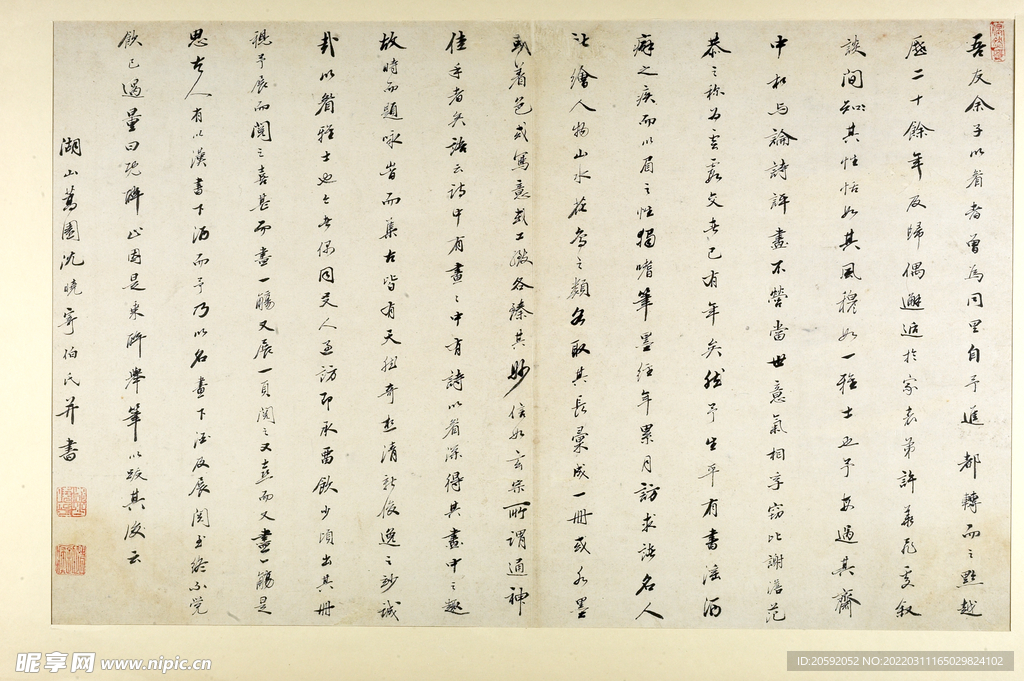 吾友余子以耆者曾為同里自予進都轉而之點越
歷二十餘年反歸偶邂逅於家表弟許兼彪處叙
談間知其性恬如其風穆如一雅士也予每過其齋
中相與論詩評畫不啻當世意氣相孚竊比謝澹范
恭之稱為雲霞交者已有年矣然予生平有書淫酒
癖之疾而以眉之性獨嗜筆墨經年累月訪求諸名人
之繪人物山水花鳥之類各取其長彙成一冊或水墨
或着色或寫意或工緻各臻其妙信如玄宗所謂通神
佳手者矣語云詩中有畫畫中有詩以耆深得其畫中之趣
故時而題咏時而集古皆有天趣奇想清新俊逸之妙誠
哉以耆雅士也七夕後同友人過訪即承留飲少頃出其冊
視予展而閱之喜甚而盡一觴又展一頁閱之又喜而又盡一觴是
思古人有以漢書下酒而予乃以名畫下酒反展閱出終不覺
飲已過量曰既醉止因是乘醉舉筆以跋其後云
湖山舊園沈曉寧伯氏并書
昵享网 www.nipic.cn
ID:20592052 NO:20220311165029824102